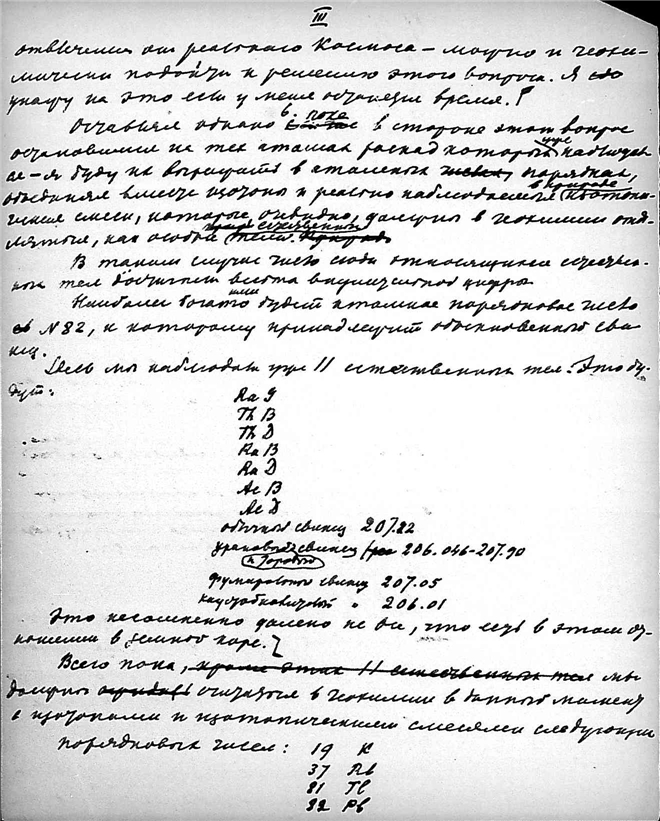 III
отвлечения от реального Космоса – можно и геохи-
мически подойти к решению этого вопроса. Я
укажу на это если у меня останется время.
Оставляя однако пока в стороне этот вопрос
остановимся на тех атомах распад которых уже наблюдал-
ся – я буду их выражать в атомных порядках,
объединяя вместе изотопы и реально наблюдаемые в природе изотопи-
ческие смеси, которые, очевидно, должны в геохимии отд-
ляться, как особые естественные тела.
В таком случае число сюда относящихся естествен-
ных тел достигнет весьма внушительной цифры
Наиболее богато будет атомное порядковое число
N 82, к которому принадлежит обыкновенный сви-
нец.
Здесь мы наблюдаем уже 11 естественных тел. Это бу-
дут:
Ra G
Th B
Th D
Ra B
Ra D
Ac B
Ac D
обычный свинец 207.22
урановый свинец 206.046-207.90
и ториевый
207.05
свинец
" 206.01
Это несомненно далеко не все, что есть в этом от-
ношении в земной коре.
Всего пока, кроме этих 11 естественных тел мы
должны считаться в геохимии в данный момент
с изотопами и изотопическими смесями следующих
порядковых чисел: 19 K
37 Rb
81 Tl
82 Pb